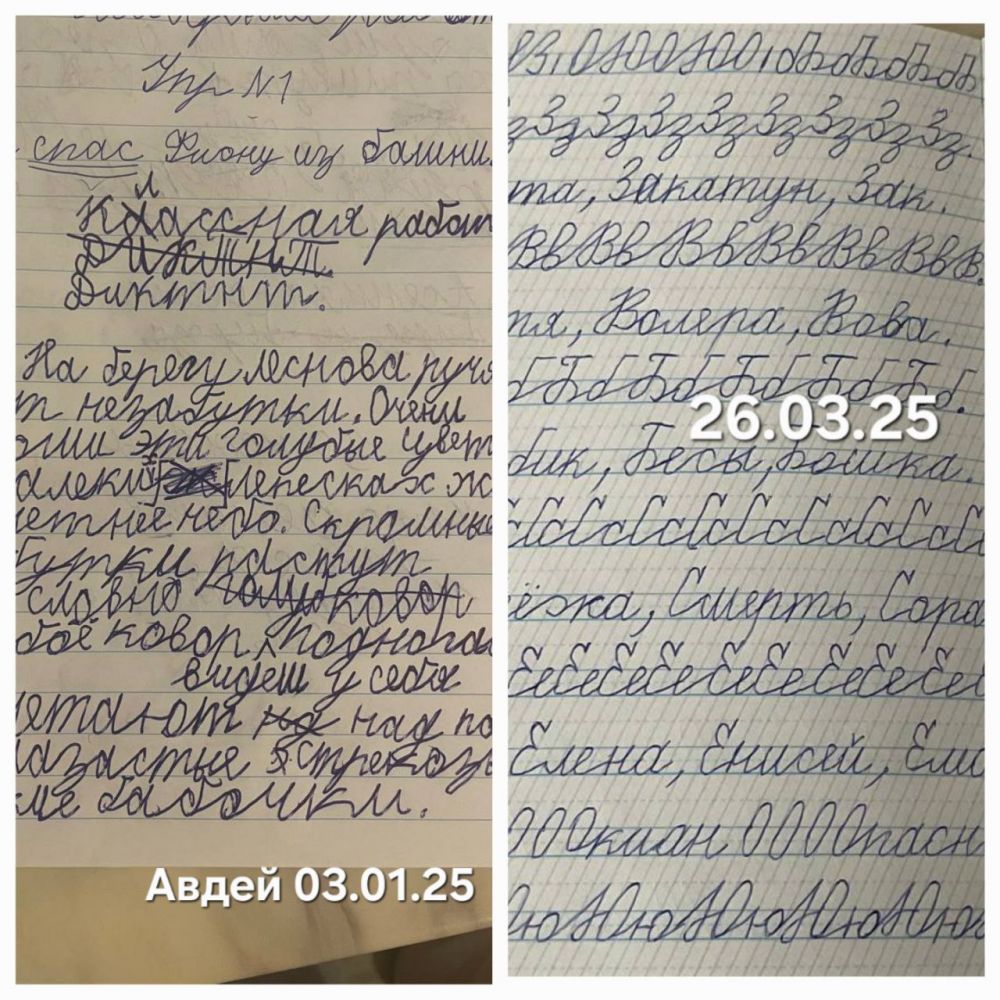 Упр N 1
спас Фиону из башни.
л
Классная работ
Диктнт.
Диктнт.
На берегу леснова руча
т незабутки. Очени
эти голубые цвет
алеких лепесках жо
етнее небо. Скромные
бутки растут
словно голуб ковор
бое ковор, Под нога
видеш у себя
етают на над по
лазастые стрекозы
ме бабочки.
Авдей 03.01.25
Зз Зз Зз Зз Зз Зз Зз.
та, Закатун, Зак.
Вв Вв Вв Вв Вв Вв В.
тя, Волера, Вова.
б Бб Бб Бб Бб Бб.
26.03.25
бик, Бесы, Бошка.
Сс Сс Сс Сс Сс Сс Сс С
ёжа, Смерть, Сора
Ее Ее Ее Ее Ее Ее Ее Ее
Елена, Енисей, Ели
ОООкиан ООООпасн
Юю Юю Юю Юю Юю